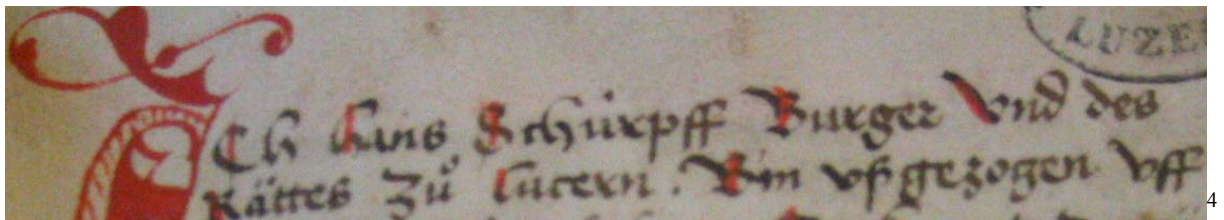 LUZE
ICh hans Schürpff Burger Vnd des
Rättes Zů lucern . Bin vßgezogen Vff
4